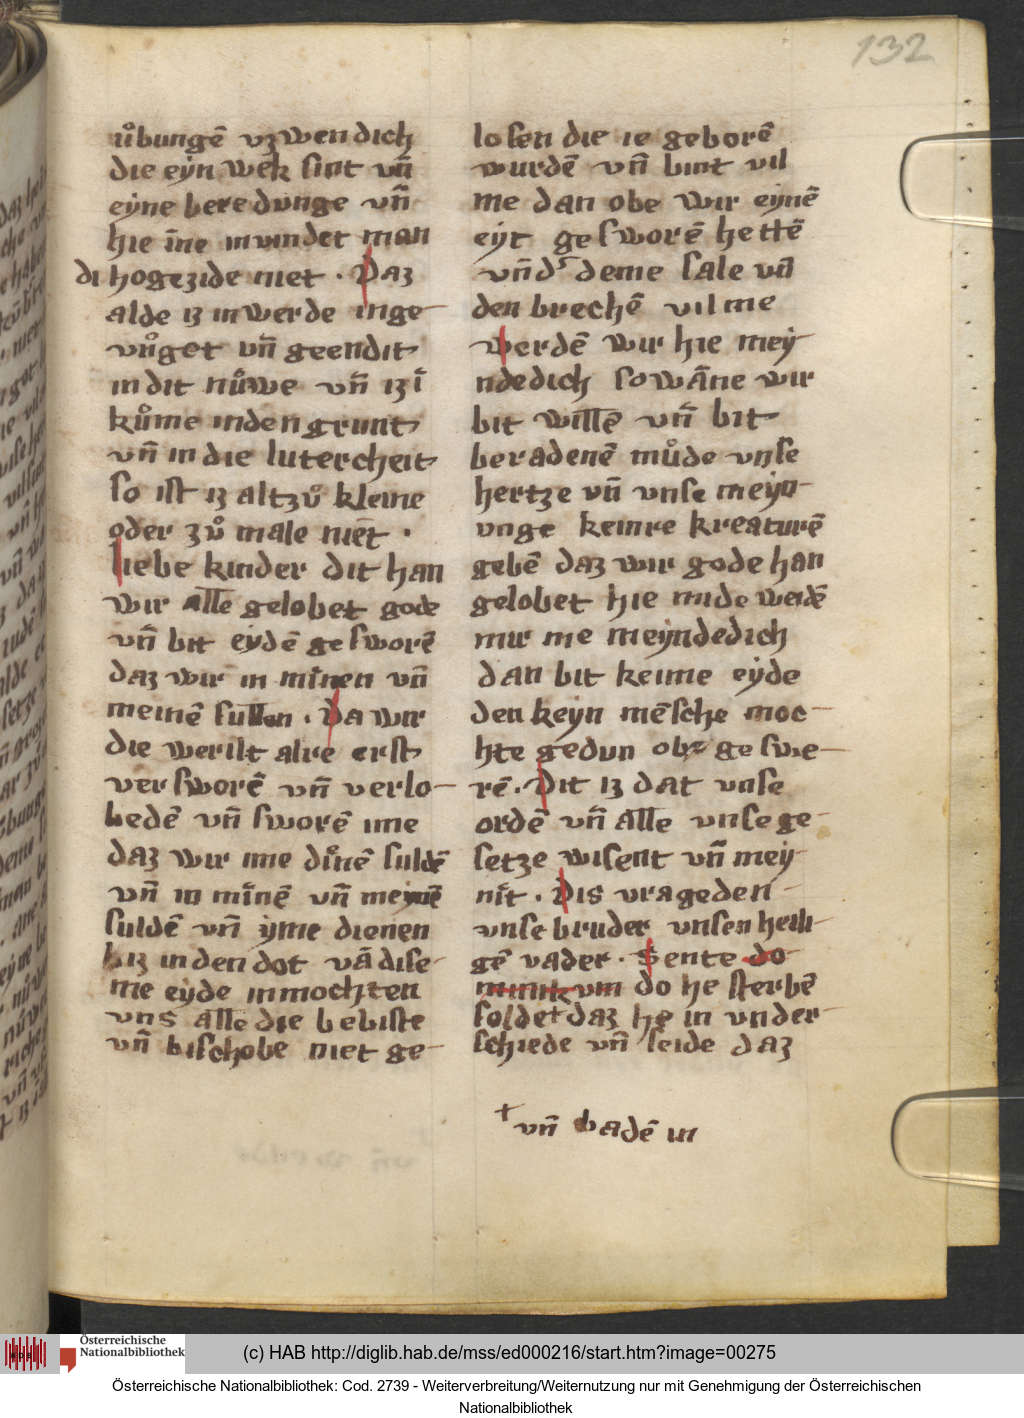 132
uͦbungē vzwendich
die eyn wek sint vn̄
eyne beredunge vn̄
hie īne invindet man
di hogezide niet · Daz
alde iz inwerde inge-
vuͦget vn̄ geendit
in dit nuͦwe vn̄ iz ī
kuͦme in den grunt
vn̄ in die lutercheit
so ist iz altzuͦ kleine
oder zuͦ male niet ·
liebe kinder dit han
wir alle gelobet gode
vn̄ bit eydē gesworē
daz wir in minen vn̄
meinē sullen · Da wir
die werilt alre erst
versworē vn̄ verlo-
bedē vn̄ sworē ime
daz wir ime diͦnē suldē
vn̄ in minē vn̄ meynē
suldē vn̄ yme dienen
biz in den dot vā dise-
me eyde inmochten
vns alle die bebiste
vn̄ bischobe niet ge-
losen die ie geborē
wurdē vn̄ bint vil
me dan obe wir eynē
eyt gesworē hettē
vn̄d' deme sale vn̄
den brechē vil me
werdē wir hie mey-
ndedich so wāne wir
bit willē vn̄ bit
beradenē muͦde vnse
hertze vn̄ vnse meyn-
unge keinre kreaturē
gebē daz wir gode han
gelobet hie mide werdē
mir me meyndedich
dan bit keime eyde
den keyn mēsche moc-
hte gedun obe geswe-
rē · Dit iz dat vnse
ordē vn̄ alle vnse ge-
setze wisent vn̄ mey-
nit · Dis vrageden
vnse bruder vnsen heili-
gē vader · Sente do
minikum do he sterbē
solde + daz he in vnder-
schiede vn̄ seide daz
+ vn̄ badē in
Österreichische
Nationalbibliothek
(c) HAB http://diglib.hab.de/mss/ed000216/start.htm?image=00275
Österreichische Nationalbibliothek: Cod. 2739 - Weiterverbreitung/Weiternutzung nur mit Genehmigung der Österreichischen
Nationalbibliothek